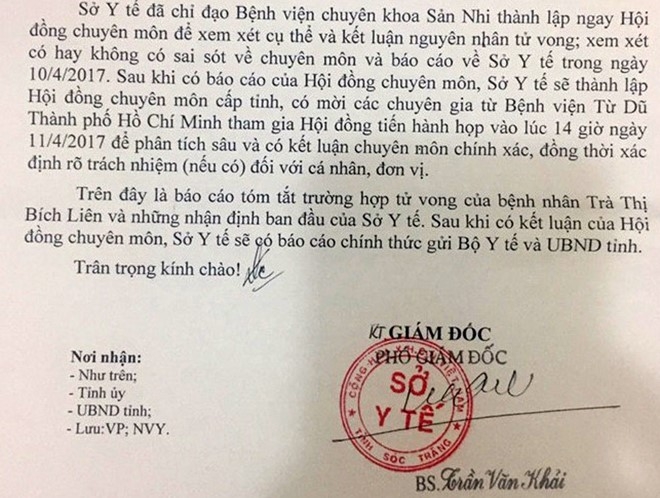 Sở Y tế đã chỉ đạo Bệnh viện chuyên khoa Sản Nhi thành lập ngay Hội
đồng chuyên môn để xem xét cụ thể và kết luận nguyên nhân tử vong; xem xét
có hay không có sai sót về chuyên môn và báo cáo về Sở Y tế trong ngày
10/4/2017. Sau khi có báo cáo của Hội đồng chuyên môn, Sở Y tế sẽ thành lập
Hội đồng chuyên môn cấp tỉnh, có mời các chuyên gia từ Bệnh viện Từ Dũ
Thành phố Hồ Chí Minh tham gia Hội đồng tiến hành họp vào lúc 14 giờ ngày
11/4/2017 để phân tích sâu và có kết luận chuyên môn chính xác, đồng thời xác
định rõ trách nhiệm (nếu có) đối với cá nhân, đơn vị.
Trên đây là báo cáo tóm tắt trường hợp tử vong của bệnh nhân Trà Thị
Bích Liên và những nhận định ban đầu của Sở Y tế. Sau khi có kết luận của Hội
đồng chuyên môn, Sở Y tế sẽ có báo cáo chính thức gửi Bộ Y tế và UBND tỉnh.
Trân trọng kính chào!
KT. GIÁM ĐỐC
PHÓ GIÁM ĐỐC
Nơi nhận:
- Như trên;
- Tỉnh ủy
- UBND tỉnh;
- Lưu:VP; NVY.
SỞ
Y TẾ
TỈNH SÓC TRĂNG
BS. Trần Văn Khải